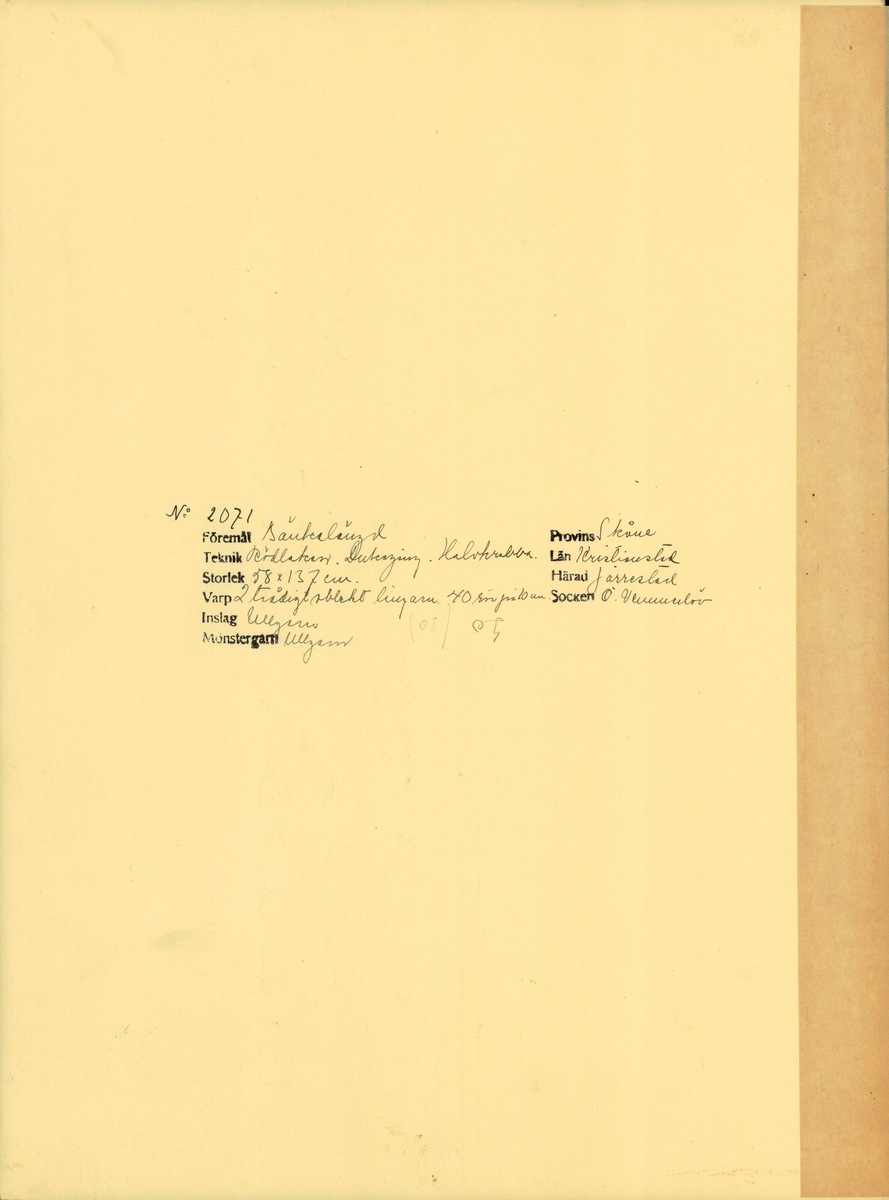 No 2071
Föremål Bänkalängd
Teknik Rödlakan. Dukagång. Halvkrabba.
Storlek 58 x 137 cm.
Varp 2 trådigt oblekt lingarn. 40 rör på 10 cm.
Inslag Ullgarn
Mönstergarn Ullgarn
Provins Skåne
Län Kristianstad
Härad Järrestad
Socken Ö. Vemmenlöv